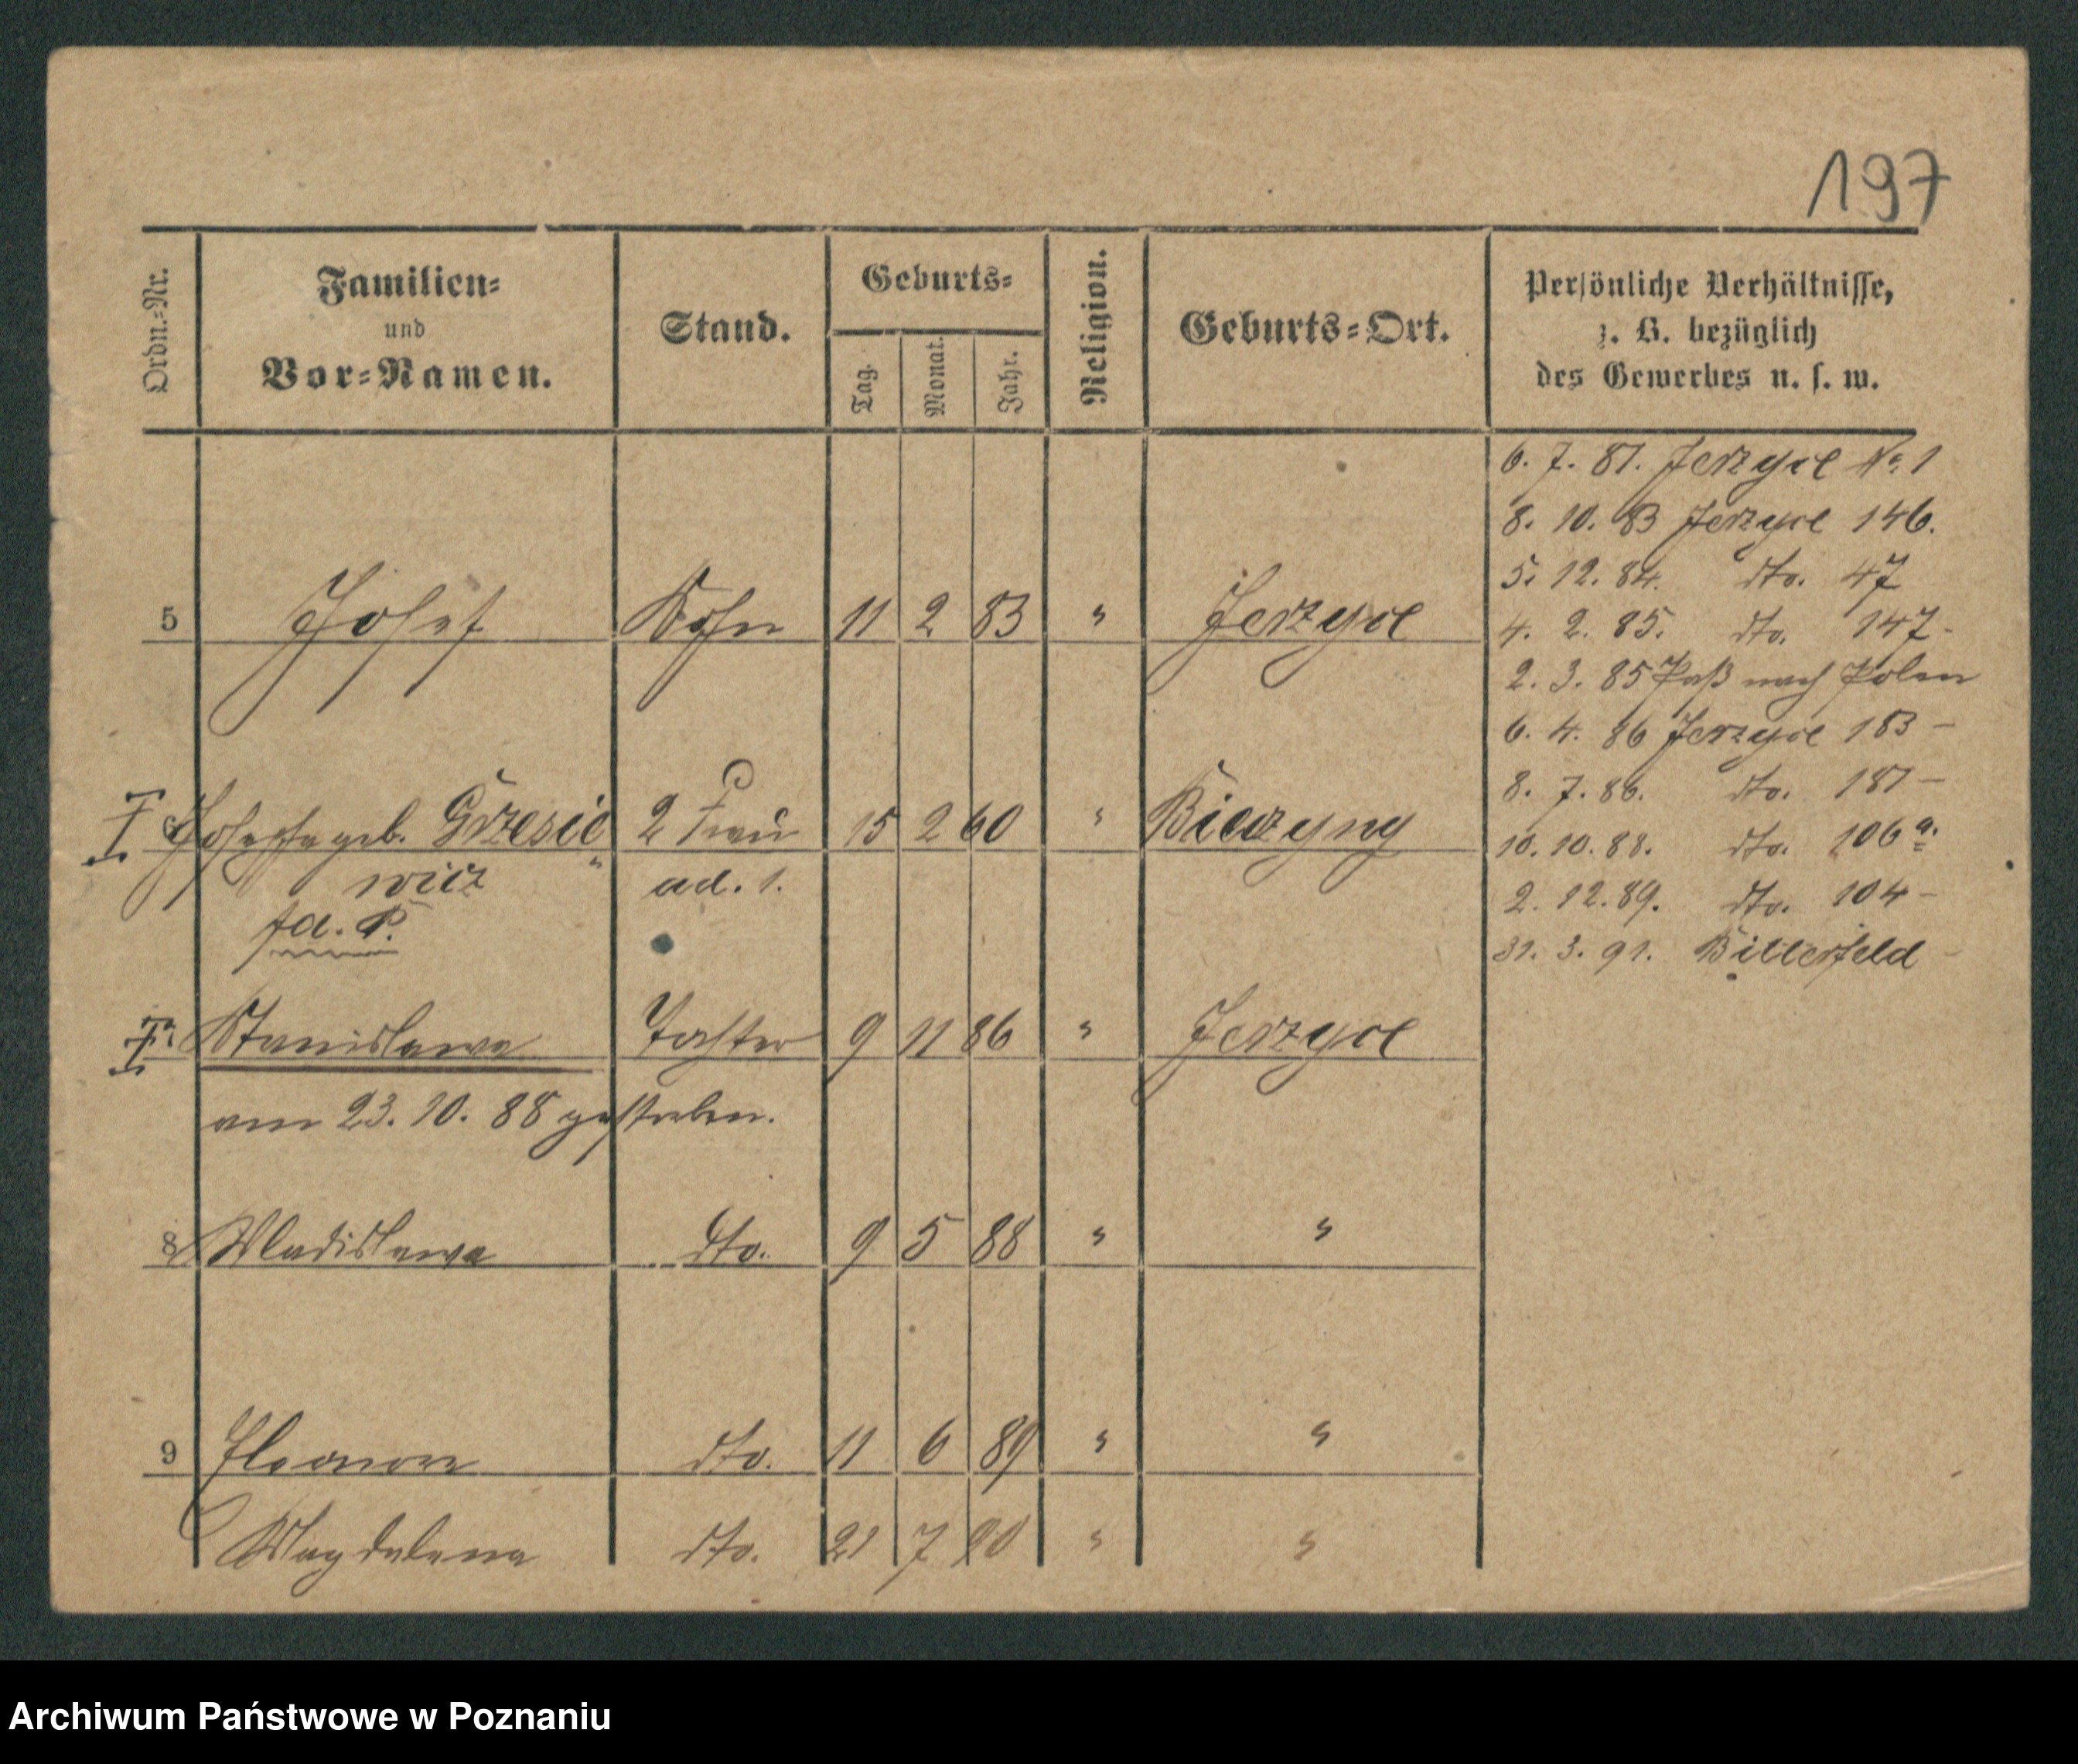 197
Ordn.-Nr.
Familien-
und
Vor-Namen.
Stand.
Geburts-
Tag.
Monat.
Jahr.
Religion.
Geburts-Ort.
Persönliche Verhältnisse,
z. B. bezüglich
des Gewerbes u. s. w.
6. 7. 81. Jerzyce No. 1
8. 10. 83 Jerzyce 146.
5. 12. 84. dto. 47
4. 2. 85. dto. 147-
2. 3. 85 Paß nach Polen
6. 4. 86 Jerzyce 183 -
8. 7. 86. dto. 187 -
10. 10. 88. dto. 106 a.
2. 12. 89. dto. 104 -
31. 3. 91. Bitterfeld -
5 Josef Sohn 11 2 83 " Jerzyce
6 Josepha geb. Grzesie 2 Frau 15 2 60 " Bieczyny
wicz ad. 1.
fd. P.
Stanislawa Tochter 9 11 86 " Jerzyce
am 23. 10. 88 gestorben.
8 Wladislawa dto. 9 5 88 " "
9 Eleonora dto. 11 6 89 " "
Magdalena dto. 21 7 90 " "
Archiwum Państwowe w Poznaniu